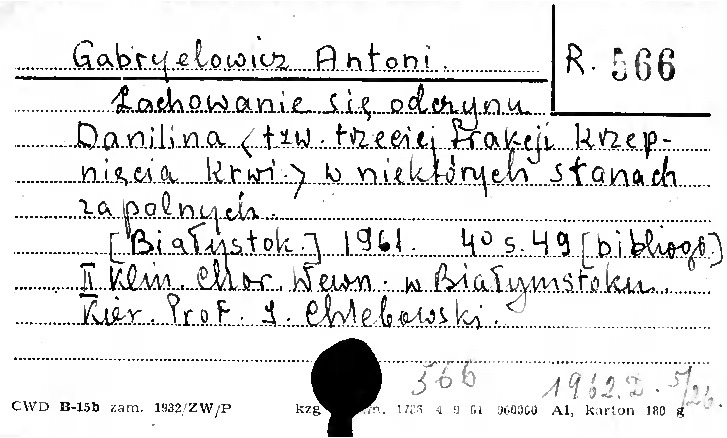 Gabryelowicz Antoni.
R. 566
Zachowanie się odczynu
Danilina (tzw. trzeciej frakcji krzep-
nięcia krwi.) w niektórych stanach
zapalnych.
[Białystok.] 1961. 40 s. 49 [bibliogr]
II Klin. Chor. Wewn. w Białymstoku.
Kier. Prof. J. Chlebowski.
566 1962.D. 5/26.
CWD B-15b zam. 1932/ZW/P kzg 4 9 61 A1, karton 180 g